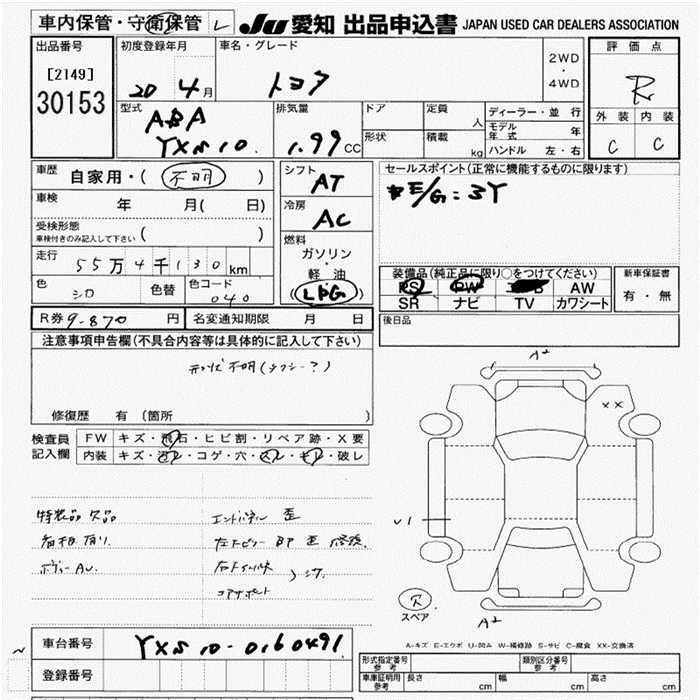 車内保管・守衛保管 L JU 愛知 出品申込書 JAPAN USED CAR DEALERS ASSOCIATION
出品番号 [2149] 30153
初度登録年月 20 4月
車名・グレード トヨタ
2WD・4WD
評価点 R
外装 内装
C C
型式 ABA YXS10
排気量 1.99 CC
ドア
形状
定員 人
積載 kg
ディーラー・並行
モデル年式 年
ハンドル 左・右
車歴 自家用・(不明)
車検 年 月( 日)
受検形態 ( )
車検付きのみ記入して下さい
走行 55万4千130km
色 シロ 色替 色コード 040
シフト AT
冷房 AC
燃料 ガソリン・軽油 (LPG)
セールスポイント(正常に機能するものに限ります)
E/G=3Y
装備品(純正品に限り○をつけてください)
PS PW AW
SR ナビ TV カワシート
新車保証書 有・無
R券 9-870 円 名変通知期限 月 日
後日品
注意事項申告欄(不具合内容等は具体的に記入して下さい)
形状不明(タクシー?)
修復歴 有 (箇所
検査員記入欄
FW キズ・飛石・ヒビ割・リペア跡・X要
内装 キズ・ヨゴレ・コゲ・穴・スレ・キレ・破レ
特装品欠品 エンドパネル 歪
看板有り 左下ピラー 歪 修復
コアサポート
A2
XX
U1
スペア
A2
A-キズ E-エクボ U-凹み W-補修跡 S-サビ C-腐食 XX-交換済
車台番号 YXS10-0160491
登録番号
型式指定番号 参考
類別区分番号 参考
車庫証明用 参考 長さ cm 幅 cm 高さ cm